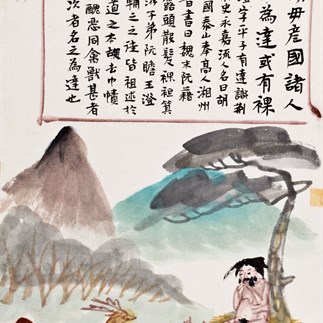 毋彦國諸人
為達或有裸
澄字平子有達識荆
史永嘉流人名曰胡
國泰山奉高人湘州
書曰魏末阮籍
露頭散髮裸袒箕
子弟阮瞻王澄
輔之之徒皆祖述於
道之本故去巾幘
醜惡同禽獸甚者
次者名之為達也